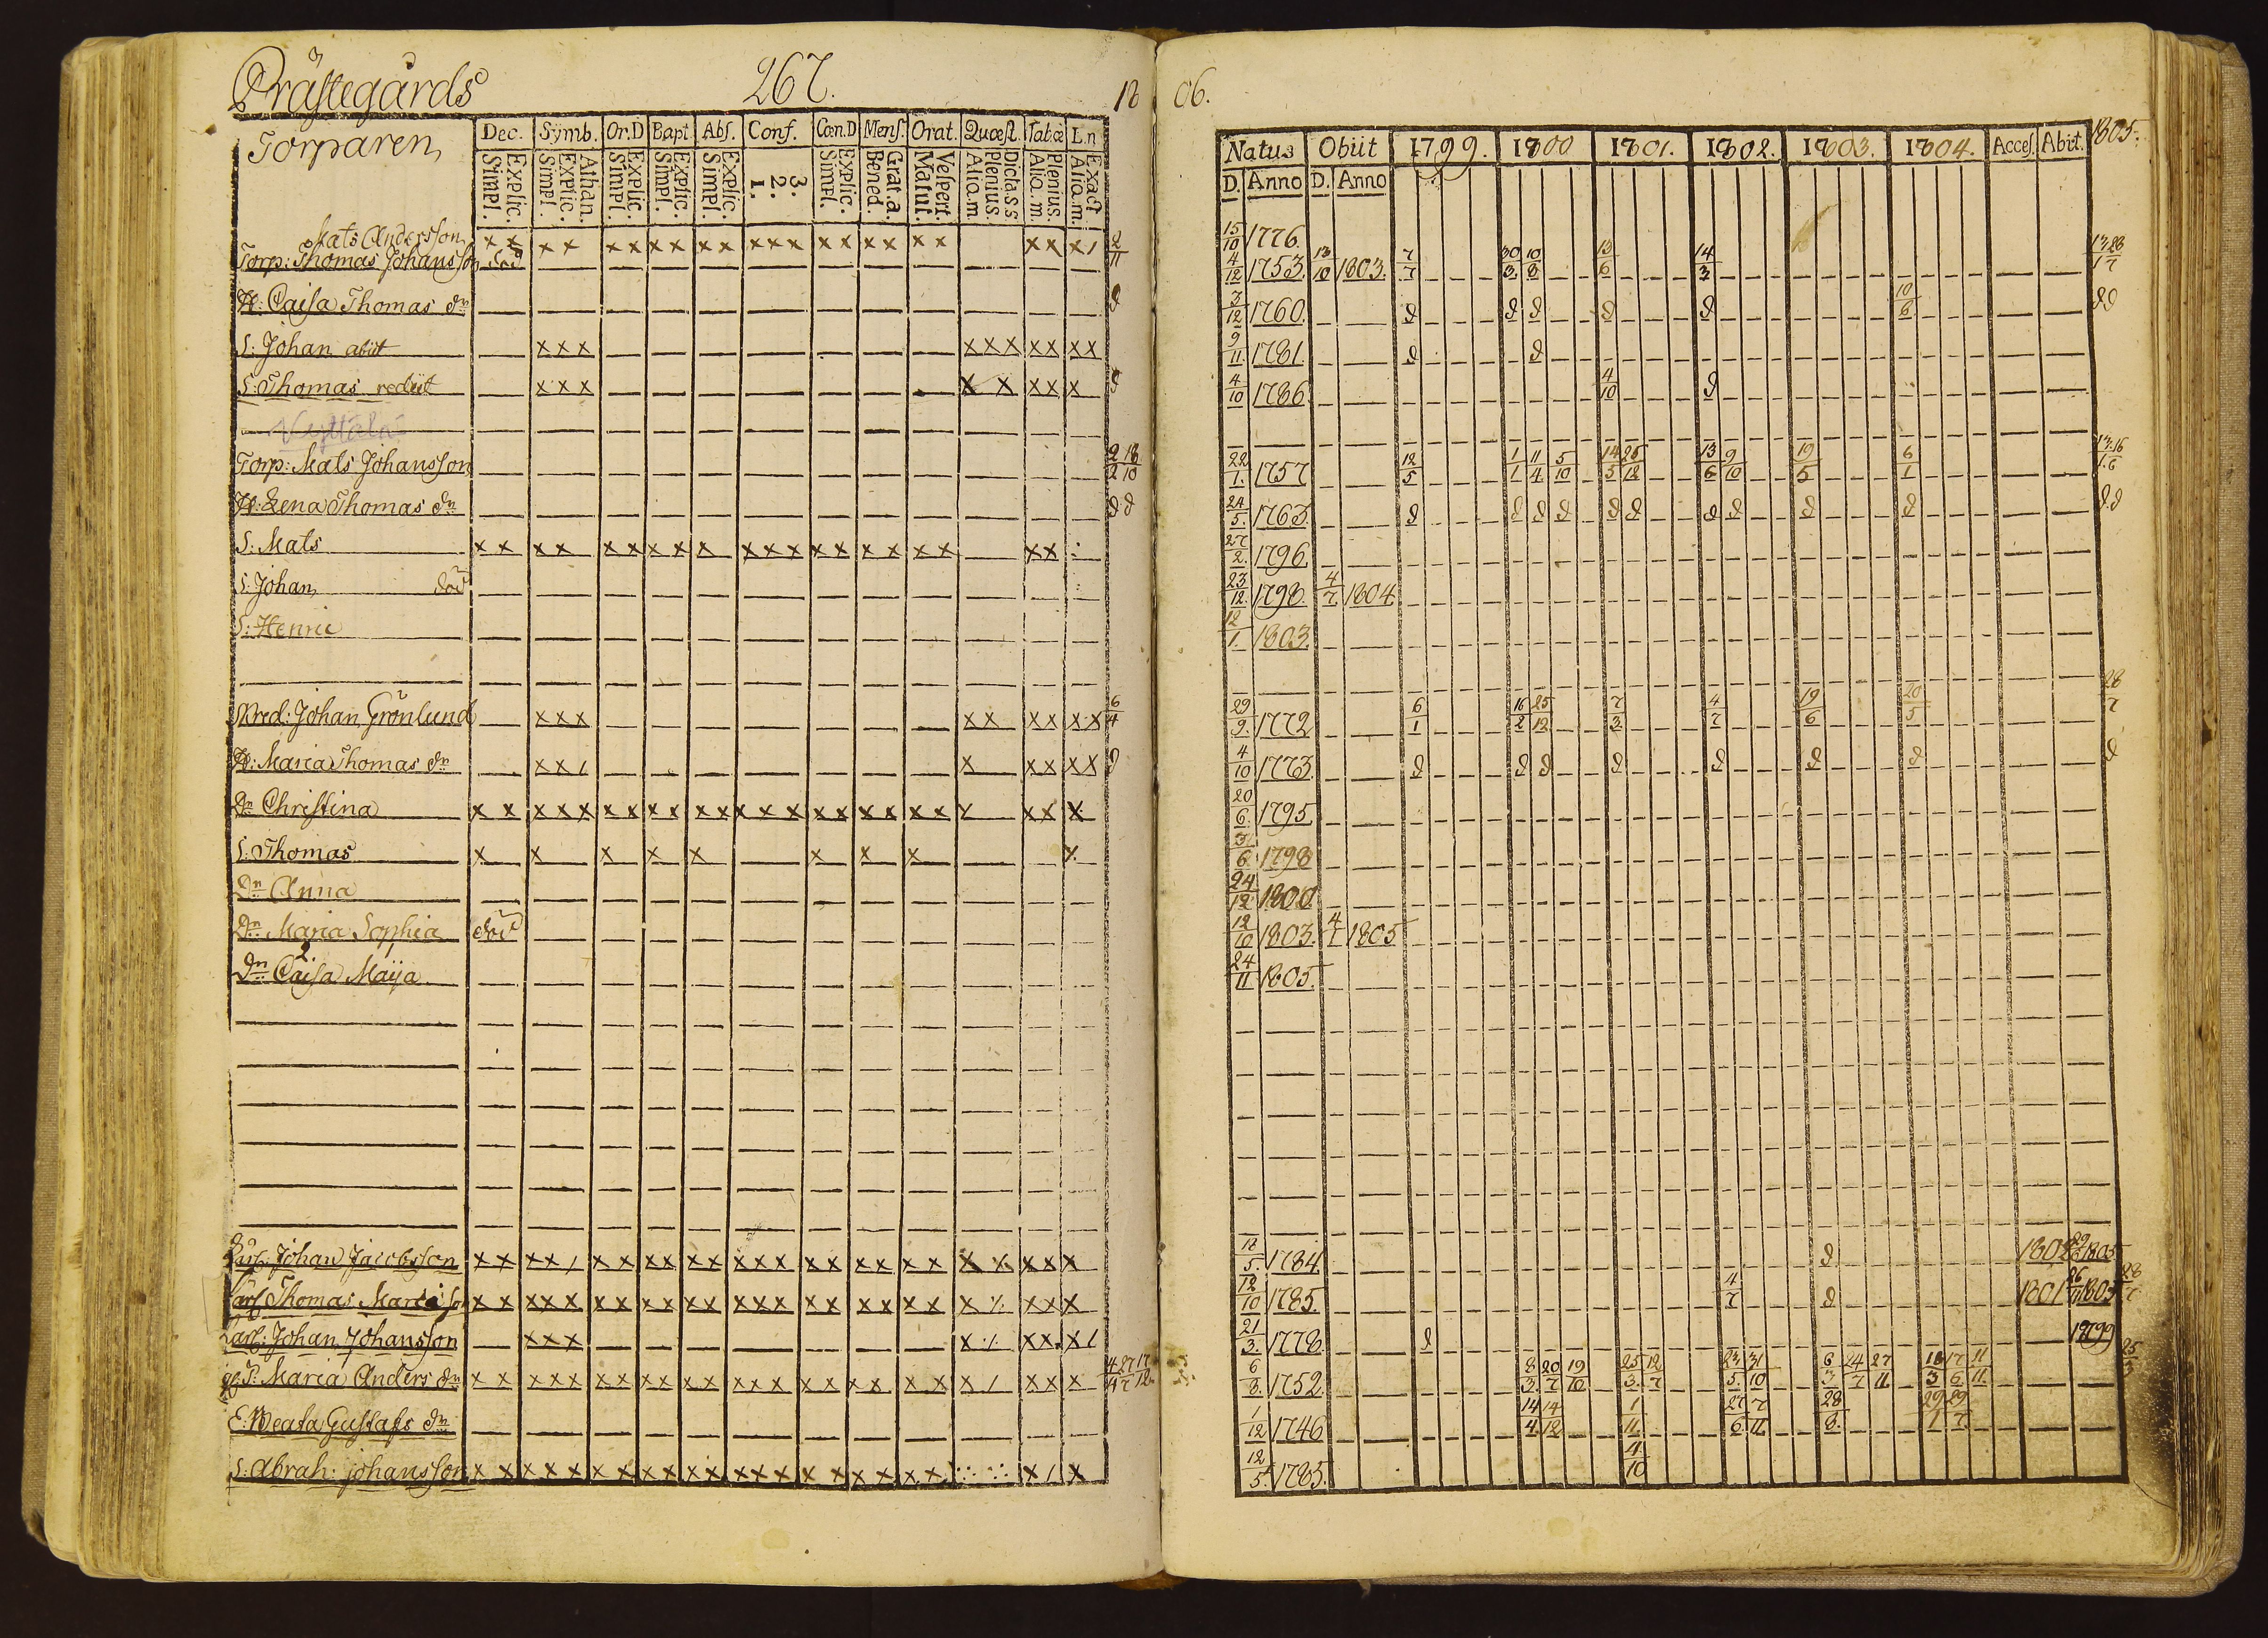 Prästegårds 267. 18 06.
Torparen
Dec. Symb. Or.D Bapt Abs. Conf. Cœn.D Mens. Orat. Quœst. Tabæ L.n
Explic. Simpl. Athan. Explic. Simpl. Explic. Simpl. Explic. Simpl. Explic. Simpl. 3. 2. 1. Explic. Simpl. Grat.a. Bened. Vespert. Matut. Dicta.s.s Plenius. Alio.m. Plenius. Alio.m. Exact Alio.m.
Natus Obiit 1799. 1800 1801. 1802. 1803. 1804. Acces. Abit. 1805.
D. Anno D. Anno
Mats Andersson x x x x x x x x x x x x x x x x x x x x x x x 2/11 15/10 1776.
Torp: Thomas Johansson död 4/12 1753. 13/10 1803. 7/7 30/3 10/8 13/6 14/3
H: Caisa Thomas dr d 3/12 1760. d d d d d 10/6 d d
S: Johan abiit x x x x x x x x x x 9/11 1781. d d
S: Thomas rediit x x x x x x x x d 4/10 1786 4/10 d
Torp: Mats Johansson 2/2 18/10 22/1. 1757 12/5 1/1 11/4 5/10 14/5 26/12 13/6 9/10 19/5 6/1
H: Lena Thomas dr d d 24/5. 1763. d d d d d d d d d d d d
S: Mats x x x x x x x x x x x x x x x x x x x x 27/2. 1796.
S: Johan död 23/12. 1798. 4/7 1804
S: Henric 12/1. 1803.
Johan Grönlund x x x x x x x x x 6/4 29/9. 1772 6/1 16/2 25/12 7/3 4/7 19/6 20/5 28/7
H: Maria Thomas dr x x / x x x x x d 4/10 1773. d d d d d d d d
Dr Christina x x x x x x x x x x x x x x x x x x x x x x x x 20/6. 1795.
S: Thomas x x x x x x x x x 3/6 1798
Dr Anna 24/12 1800
Dr Maria Sophia död 12/10 1803. 4/1 1805
Dr Caisa Maija 24/11 1805.
Johan Jacobsson x x x x / x x x x x x x x x x x x x x x x x x x x 18/5. 1784. d 1805
Thomas x x x x x x x x x x x x x x x x x x x x x x x x 12/10 1785. 4/7 d 1801 28/7
Johan Johansson x x x x x x x / 21/3. 1778 d 1799
Maria Anders dr x x x x x x x x x x x x x x x x x x x x x / x x x 4/4 27/7 17/12 6/8. 1752 8/3. 20/7 19/10 25/3. 12/7 23/5. 31/10 6/3 24/7 27/11 18/3 17/6 11/11.
E: Beata Gustafs dr 1/12 1746 14/4 14/12 1/11. 27/6 7/11 28/8. 29/1 29/7
S: Abrah: Johansson x x x x x x x x x x x x x x x x x x x x x x / x 12/5. 1783. 4/10